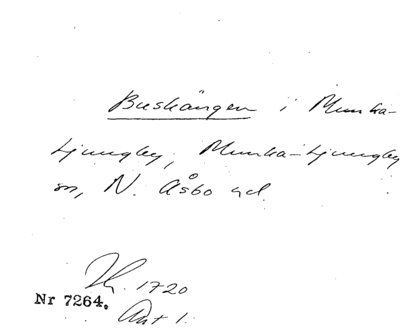 Buskängen i Munka-
Ljungby, Munka-Ljungby
sn, N. Åsbo hd.
1720
Nr 7264.
Akt 1.